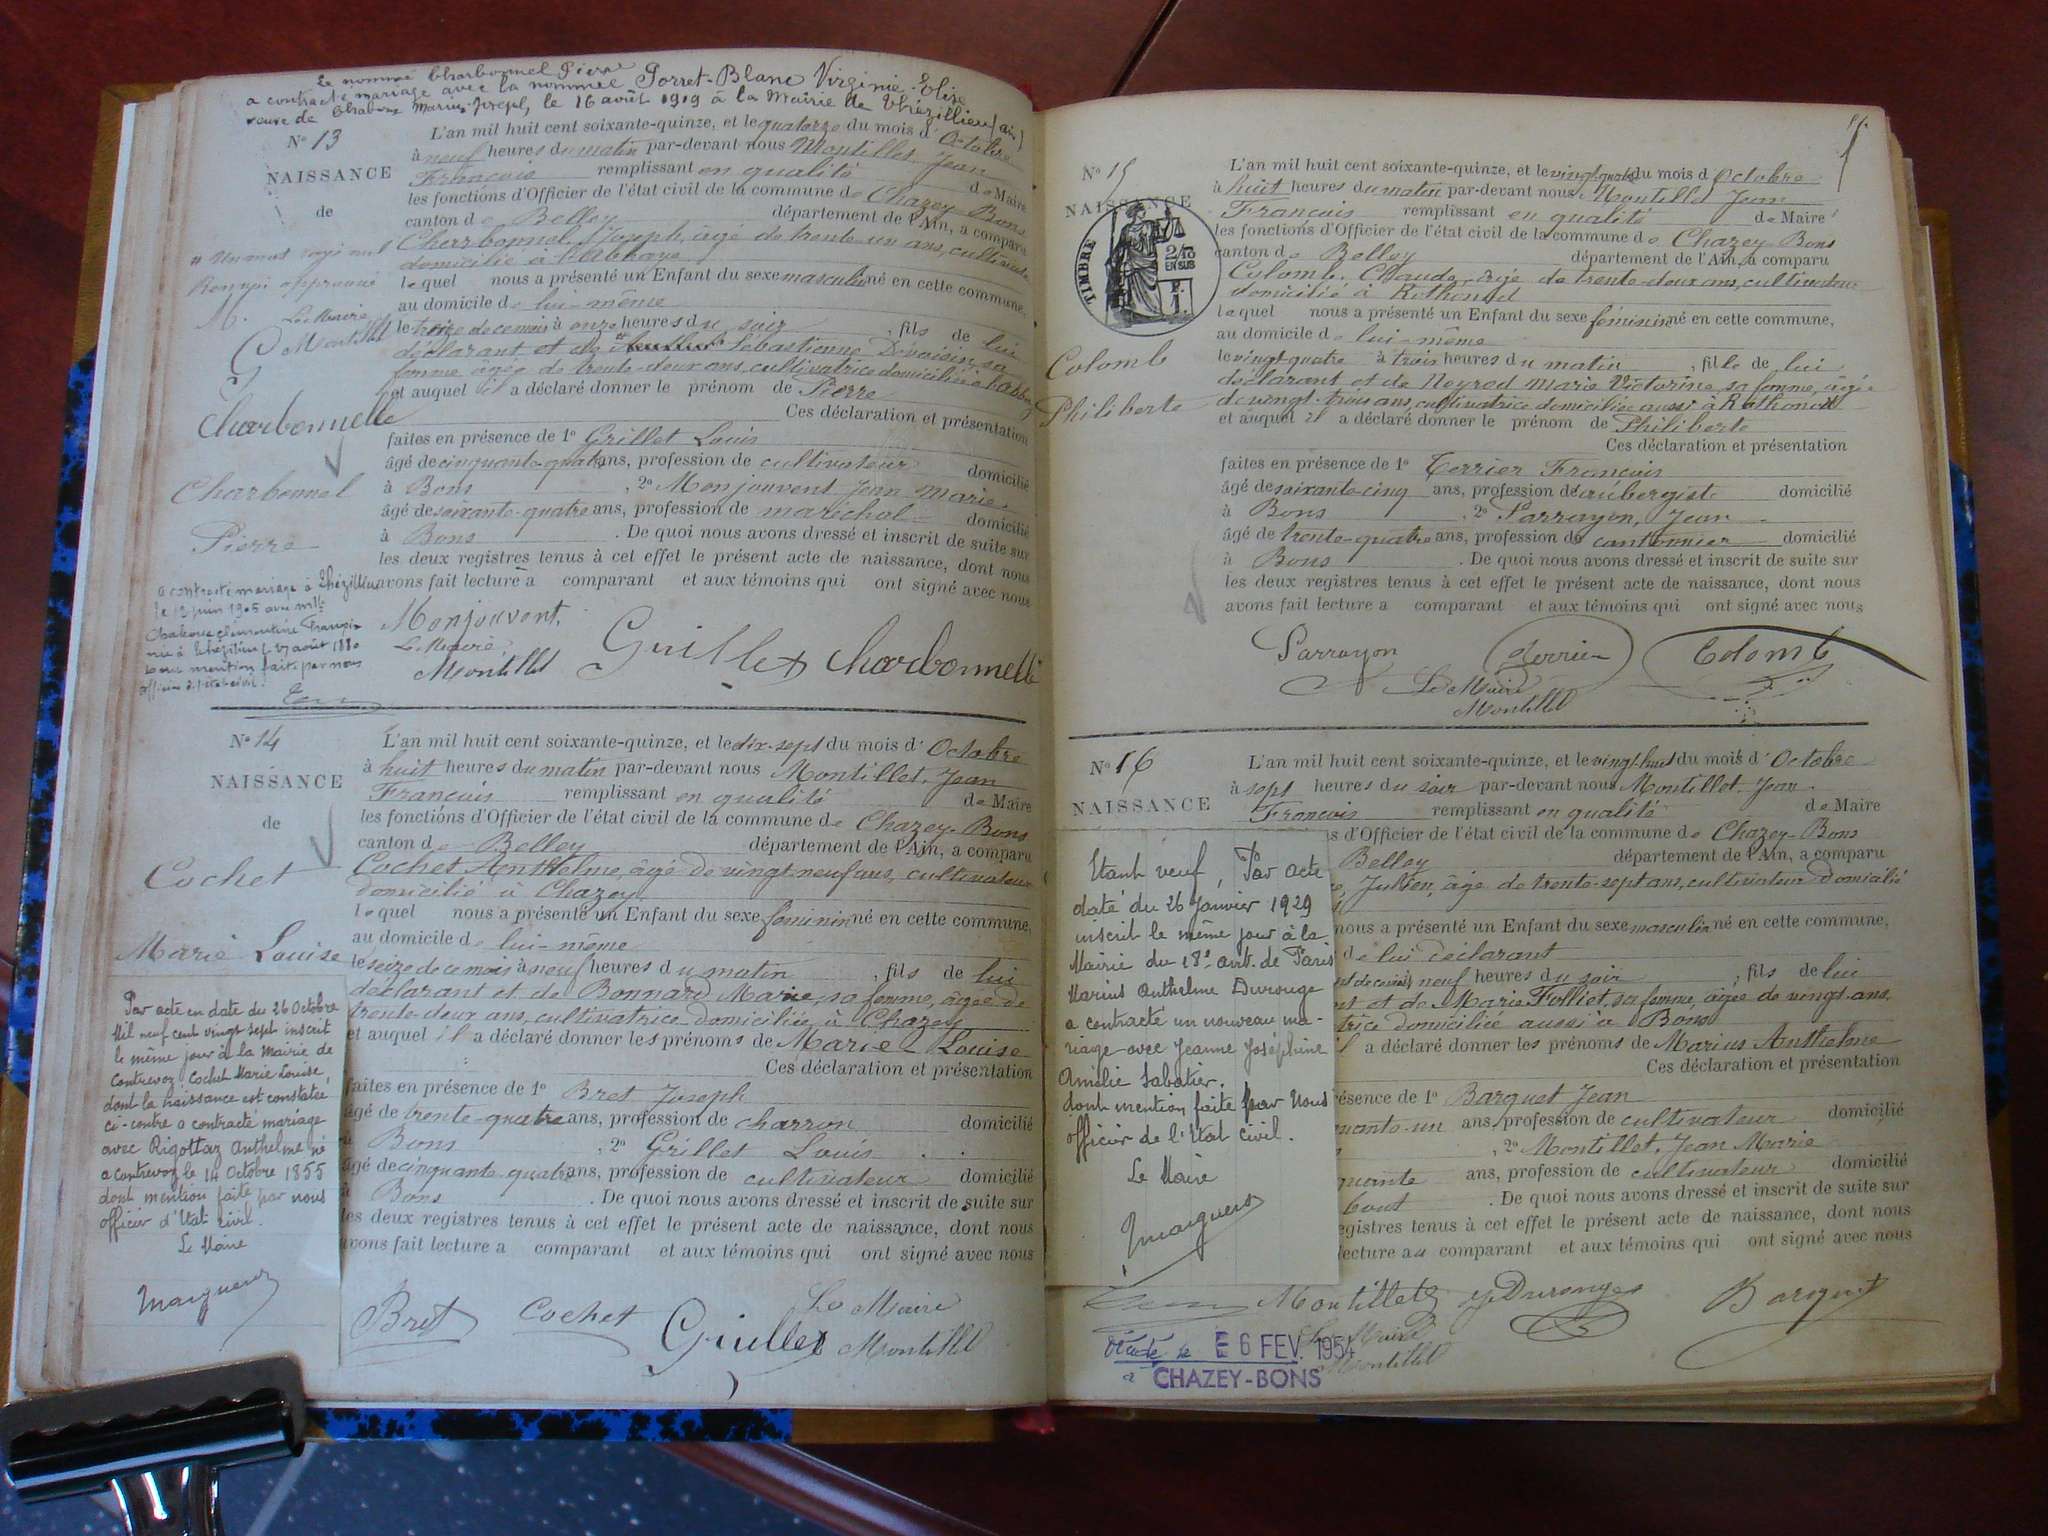 Le nommé Charbonnel Pierre
a contracté mariage avec la nommée Porret-Blanc Virginie-Elise
veuve de Chabons Marius-Joseph, le 16 août 1919 à la Mairie de Thézillieu (ain)
N° 13
NAISSANCE
de
L'an mil huit cent soixante-quinze, et le quatorze du mois d'Octobre
à neuf heures du matin par-devant nous Montillet, Jean
François remplissant en qualité de Maire
les fonctions d'Officier de l'état civil de la commune de Chazey Bons
canton de Belley département de l'Ain, a comparu
Charbonnel, Joseph, âgé de trente un ans, cultivateur
domicilié à l'Abbaye
lequel nous a présenté un Enfant du sexe masculin né en cette commune,
au domicile de lui-même
le treize de ce mois à onze heures du soir, fils de lui
déclarant et de Sebastienne Devoisin, sa
femme âgée de trente-deux ans, cultivatrice domiciliée à l'abbaye
et auquel il a déclaré donner le prénom de Pierre
Ces déclaration et présentation
faites en présence de 1° Grillet Louis
âgé de cinquante-quatre ans, profession de cultivateur domicilié
à Bons, 2° Monjouvent Jean Marie,
âgé de soixante-quatre ans, profession de marechal domicilié
à Bons. De quoi nous avons dressé et inscrit de suite sur
les deux registres tenus à cet effet le présent acte de naissance, dont nous
avons fait lecture a comparant et aux témoins qui ont signé avec nous
approuvé
Le Maire
Montillet
Charbonnelle
Charbonnel
Pierre
a contracté mariage à Thézillieu
le 12 juin 1905 avec Mlle
née à Thézillieu le 27 août 1880
mention fait par nous
officier d'état civil.
Monjouvent,
Le Maire,
Montillet
Grillet
Charbonnelle
N° 14
NAISSANCE
de
Cochet
Marie Louise
L'an mil huit cent soixante-quinze, et le dix-sept du mois d'Octobre
à huit heures du matin par-devant nous Montillet, Jean
François remplissant en qualité de Maire
les fonctions d'Officier de l'état civil de la commune de Chazey-Bons
canton de Belley département de l'Ain, a comparu
Cochet Anthelme, âgé de vingt-neuf ans, cultivateur
domicilié à Chazey
lequel nous a présenté un Enfant du sexe féminin né en cette commune,
au domicile de lui-même
le seize de ce mois à neuf heures du matin, fils de lui
déclarant et de Bonnard Marie, sa femme, âgée de
trente-deux ans, cultivatrice domiciliée à Chazey
et auquel il a déclaré donner les prénoms de Marie Louise
Ces déclaration et présentation
faites en présence de 1° Bret Joseph
âgé de trente-quatre ans, profession de charron domicilié
à Bons, 2° Grillet Louis
âgé de cinquante-quatre ans, profession de cultivateur domicilié
à Bons. De quoi nous avons dressé et inscrit de suite sur
les deux registres tenus à cet effet le présent acte de naissance, dont nous
avons fait lecture a comparant et aux témoins qui ont signé avec nous
Par acte en date du 26 Octobre
Mil neuf cent vingt sept inscrit
le même jour à la Mairie de
Contrevoz Cochet Marie Louise
dont la naissance est constatée
ci-contre a contracté mariage
avec Rigottaz Anthelme né
a Contrevoz le 14 Octobre 1855
dont mention faite par nous
officier d'Etat civil.
Le Maire
Bret
Cochet
Grillet
Le Maire
Montillet
N° 15
NAISSANCE
TIMBRE
2/10
EN SUS
Colomb
Philiberte
L'an mil huit cent soixante-quinze, et le vingt-quatre du mois d'Octobre
à huit heures du matin par-devant nous Montillet Jean
François remplissant en qualité de Maire
les fonctions d'Officier de l'état civil de la commune de Chazey-Bons
canton de Belley département de l'Ain, a comparu
Colomb, Claude, âgé de trente-deux ans, cultivateur
domicilié à Rothonod
lequel nous a présenté un Enfant du sexe féminin né en cette commune,
au domicile de lui-même
le vingt-quatre à trois heures du matin, fille de lui
déclarant et de Neyrod Marie Victorine, sa femme, âgée
de vingt-trois ans, cultivatrice domiciliée aussi à Rothonod
et auquel il a déclaré donner le prénom de Philiberte
Ces déclaration et présentation
faites en présence de 1° Terrier François
âgé de soixante-cinq ans, profession d'aubergiste domicilié
à Bons, 2° Parrayon, Jean
âgé de trente-quatre ans, profession de cantonnier domicilié
à Bons. De quoi nous avons dressé et inscrit de suite sur
les deux registres tenus à cet effet le présent acte de naissance, dont nous
avons fait lecture a comparant et aux témoins qui ont signé avec nous
Parrayon
Terrier
Colomb
Le Maire
Montillet
N° 16
NAISSANCE
L'an mil huit cent soixante-quinze, et le vingt-huit du mois d'Octobre
à sept heures du soir par-devant nous Montillet, Jean
François remplissant en qualité de Maire
s d'Officier de l'état civil de la commune de Chazey-Bons
Belley département de l'Ain, a comparu
Julien, âgé de trente-sept ans, cultivateur domicilié
nous a présenté un Enfant du sexe masculin né en cette commune,
de lui déclarant
neuf heures du soir, fils de lui
et de Marie Folliet, sa femme, âgée de vingt ans,
trice domiciliée aussi à Bons
il a déclaré donner les prénoms de Marius Anthelme
Ces déclaration et présentation
résence de 1° Barquet Jean
quante-un ans, profession de cultivateur domicilié
, 2° Montillet, Jean Marie
quante ans, profession de cultivateur domicilié
. De quoi nous avons dressé et inscrit de suite sur
egistres tenus à cet effet le présent acte de naissance, dont nous
lecture au comparant et aux témoins qui ont signé avec nous
Etant veuf, Par acte
daté du 26 Janvier 1929
inscrit le même jour à la
Mairie du 18e arrt. de Paris
Marius Anthelme Durouge
a contracté un nouveau ma-
riage avec Jeanne Joséphine
Amélie Sabatier.
dont mention faite par Nous
officier de l'Etat civil.
Le Maire
Montillet
Barquet
Le Maire
Montillet
Décédé le 6 FEV. 1954
à CHAZEY-BONS